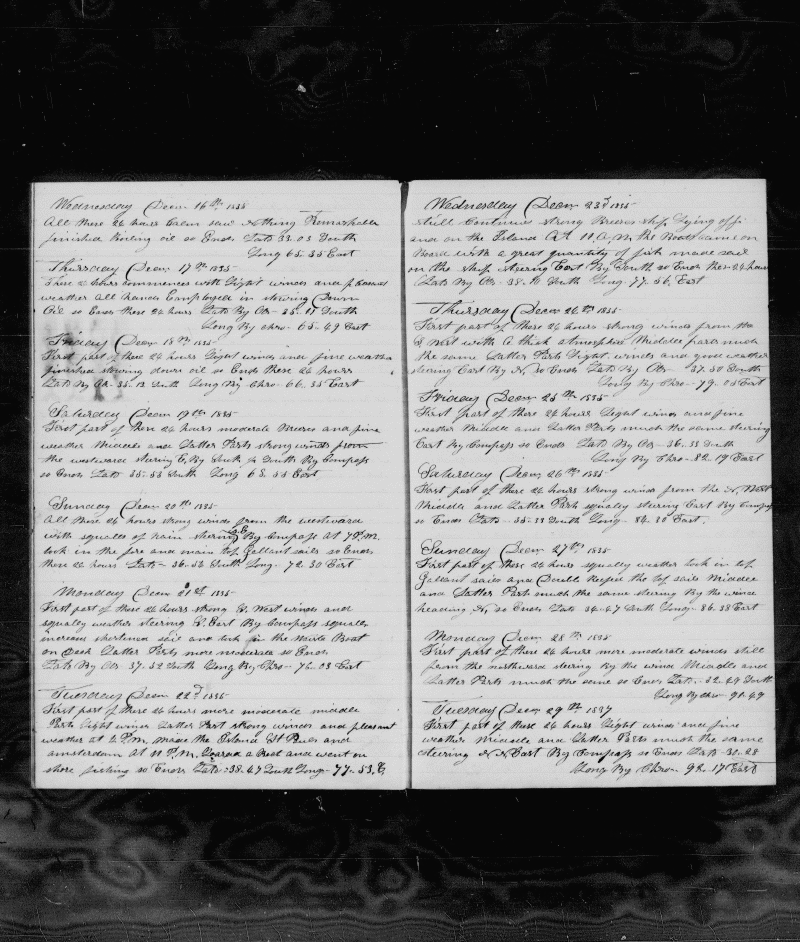 Wednesday Decm 16th 1835
All these 24 hours Calm saw Nothing Remarkable
finished Boiling oil so Ends Latd 33.03 South
Long 65.35 East
Thursday Decm 17th 1835
These 24 hours commences with Light winds and pleasant
weather All hands Employed in stowing Down
Oil so Ends these 24 hours Latd By Obs - 35.11 South
Long By chro - 65-49 East
Friday Decm 18th 1835
First part of these 24 hours Light winds and fine weather
finished stowing down oil so Ends these 24 hours
Latd By Ob - 35.12 South Long By Chro - 66.35 East
Saturday Decm 19th 1835
First part of these 24 hours moderate Breezes and fine
weather Middle and Latter Parts strong winds from
the westward stering E, By South 1/2 South By Compass
so Ends Latd 35-53 South Long 68.55 East
Sunday Decm 20th 1835
All these 24 hours strong winds from the westward
with squalls of rain stering S.E. By Compass at 7 P.M.
took in the fore and main top Gallant sails so Ends
these 24 hours Latd - 36-52 South Long - 72.30 East
Monday Decm 21st 1835
First part of these 24 hours strong S West winds and
squaly weather steering S. East By Compass squalls
increase shortened sail and took in the Waist Boat
on Deck Latter Parts more moderate so Ends
Latd By Obs - 37.52 South Long By Chro - 76.03 East
Tuesday Decm 22d 1835
First part of these 24 hours more moderate middle
Parts Light winds Latter Part strong winds and pleasant
weather at 2 P.M. made the Island St Pauls and
amsterdam at 11 P.M. Loared a Boat and went on
shore fishing so Ends Latd - 38.47 South Long - 77-53, E,
Wednesday Decm 23d 1835
still Continues strong Breezes ship Lying off
and on the Island At 11 A,M, the Boat came on
Board with a great quantity of fish made sail
on the ship steering East By South so Ends these 24 hours
Latd By Obs - 38.10 South Long - 77.56 East
Thursday Decm 24th 1835
First part of these 24 hours strong winds from the
S West with A thick atmosphere Middle parts much
the same Latter Parts Light winds and good weather
steering East By N, so Ends Latd By Obs - 37.50 South
Long By Chro - 79.05 East
Friday Decm 25th 1835
First part of these 24 hours Light winds and fine
weather Middle and Latter Parts much the same stering
East By Compass so Ends Latd By Obs - 36.33 South
Long By Chro - 82.19 East
Saturday Decm 26th 1835
First part of these 24 hours strong winds from the N, West
Middle and Latter Part squaly stering East By Compass
so Ends Latd - 35-33 South Long - 84.30 East.
Sunday Decm 27th 1835
First part of these 24 hours squaly weather took in top
Gallant sails and Double Reefed the top sails Middle
and Latter Part much the same stering By the wind
heading N, so Ends Latd 34-47 South Long - 86.38 East
Monday Decm 28th 1835
First part of these 24 hours more moderate winds still
from the northward stering By the wind Middle and
Latter Parts much the same so Ends Latd - 32.49 South
Long By chro - 91.49
Tuesday Decm 29th 1837
First part of these 24 hours Light winds and fine
weather Middle and Latter Parts much the same
steering N N East By Compass so Ends Latd - 30-28
Long By Chro - 92-17 East